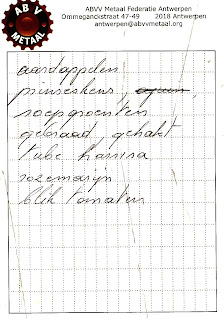 ABVV
METAAL
ABVV Metaal Federatie Antwerpen
Ommeganckstraat 47-49 2018 Antwerpen
antwerpen@abvvmetaal.org
aardappelen
prinseskens, ajuin,
soepgroenten
gebraad, gehakt
tube harrisa
rozemarijn
blik tomaten